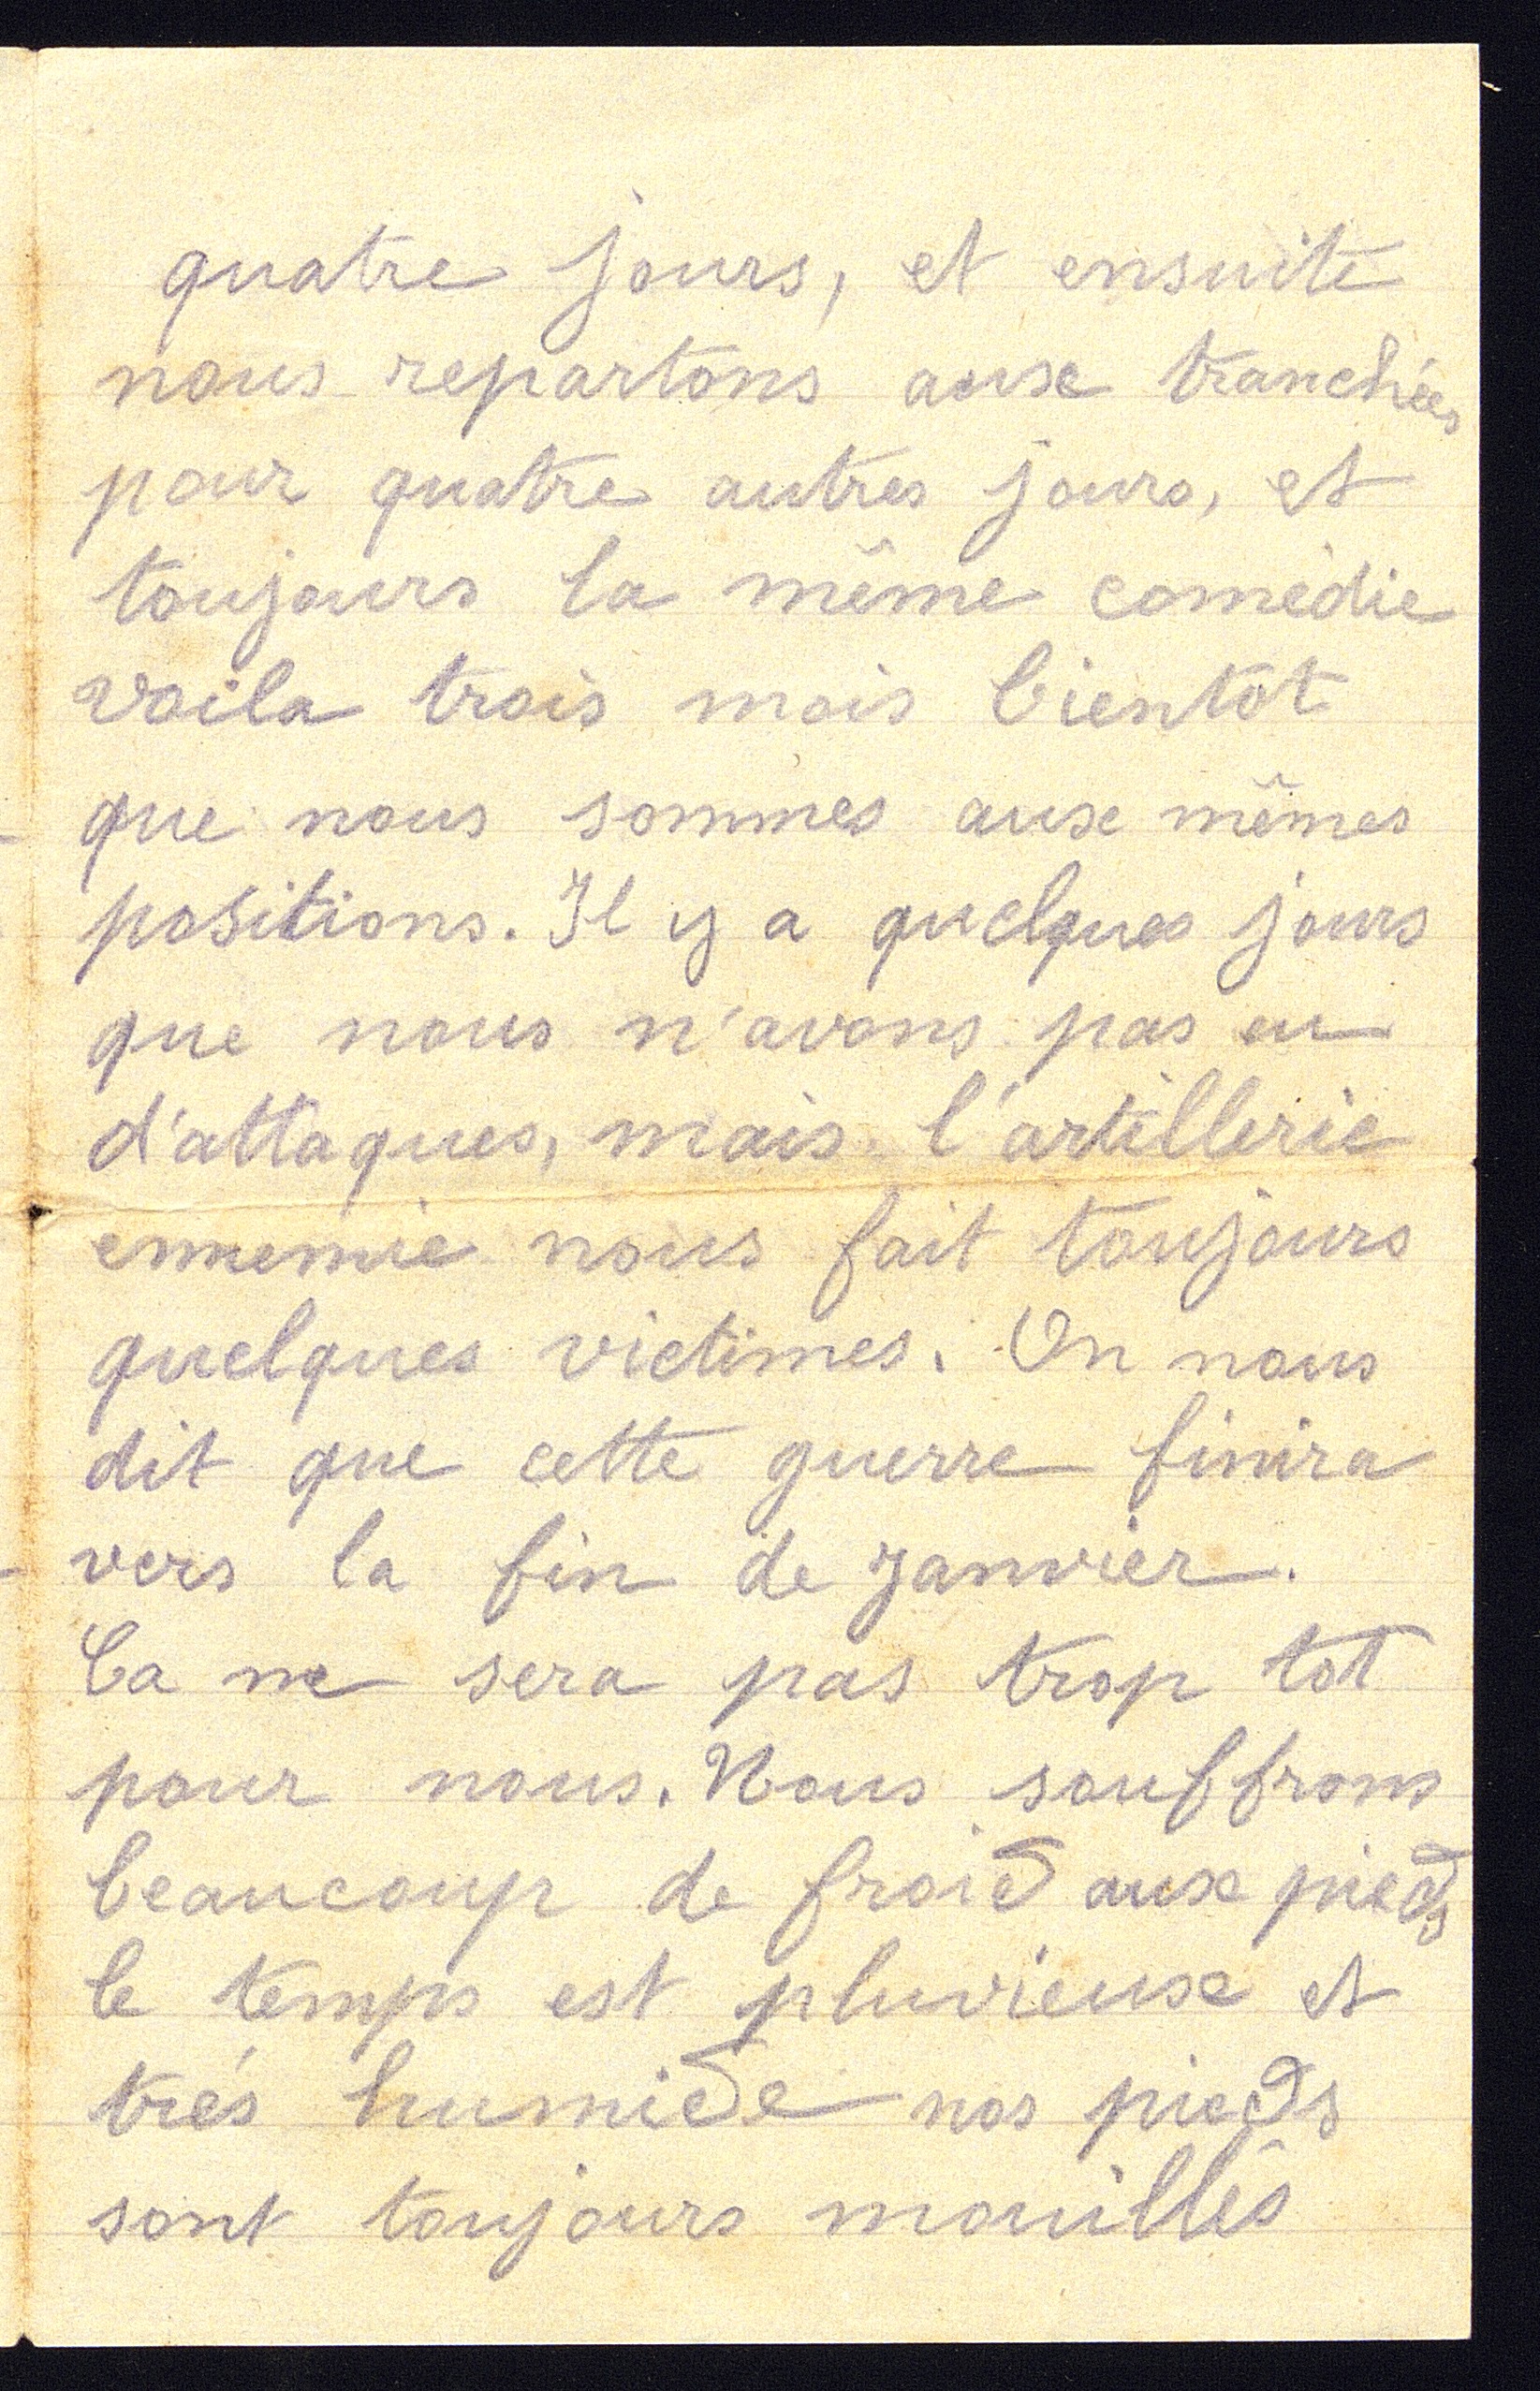 quatre jours, et ensuite
nous repartons aux tranchées
pour quatre autres jours, et
toujours la même comédie
voila trois mois bientôt
que nous sommes aux mêmes
positions. Il y a quelques jours
que nous n'avons pas eu
d'attaques, mais l'artillerie
ennemie nous fait toujours
quelques victimes. On nous
dit que cette guerre finira
vers la fin de Janvier.
Ca ne sera pas trop tôt
pour nous. Nous souffrons
beaucoup de froid aux pieds
le temps est pluvieux et
trés humide nos pieds
sont toujours mouillés